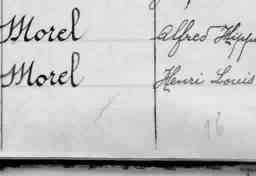 Morel Alfred Hipp
Morel Henri Louis